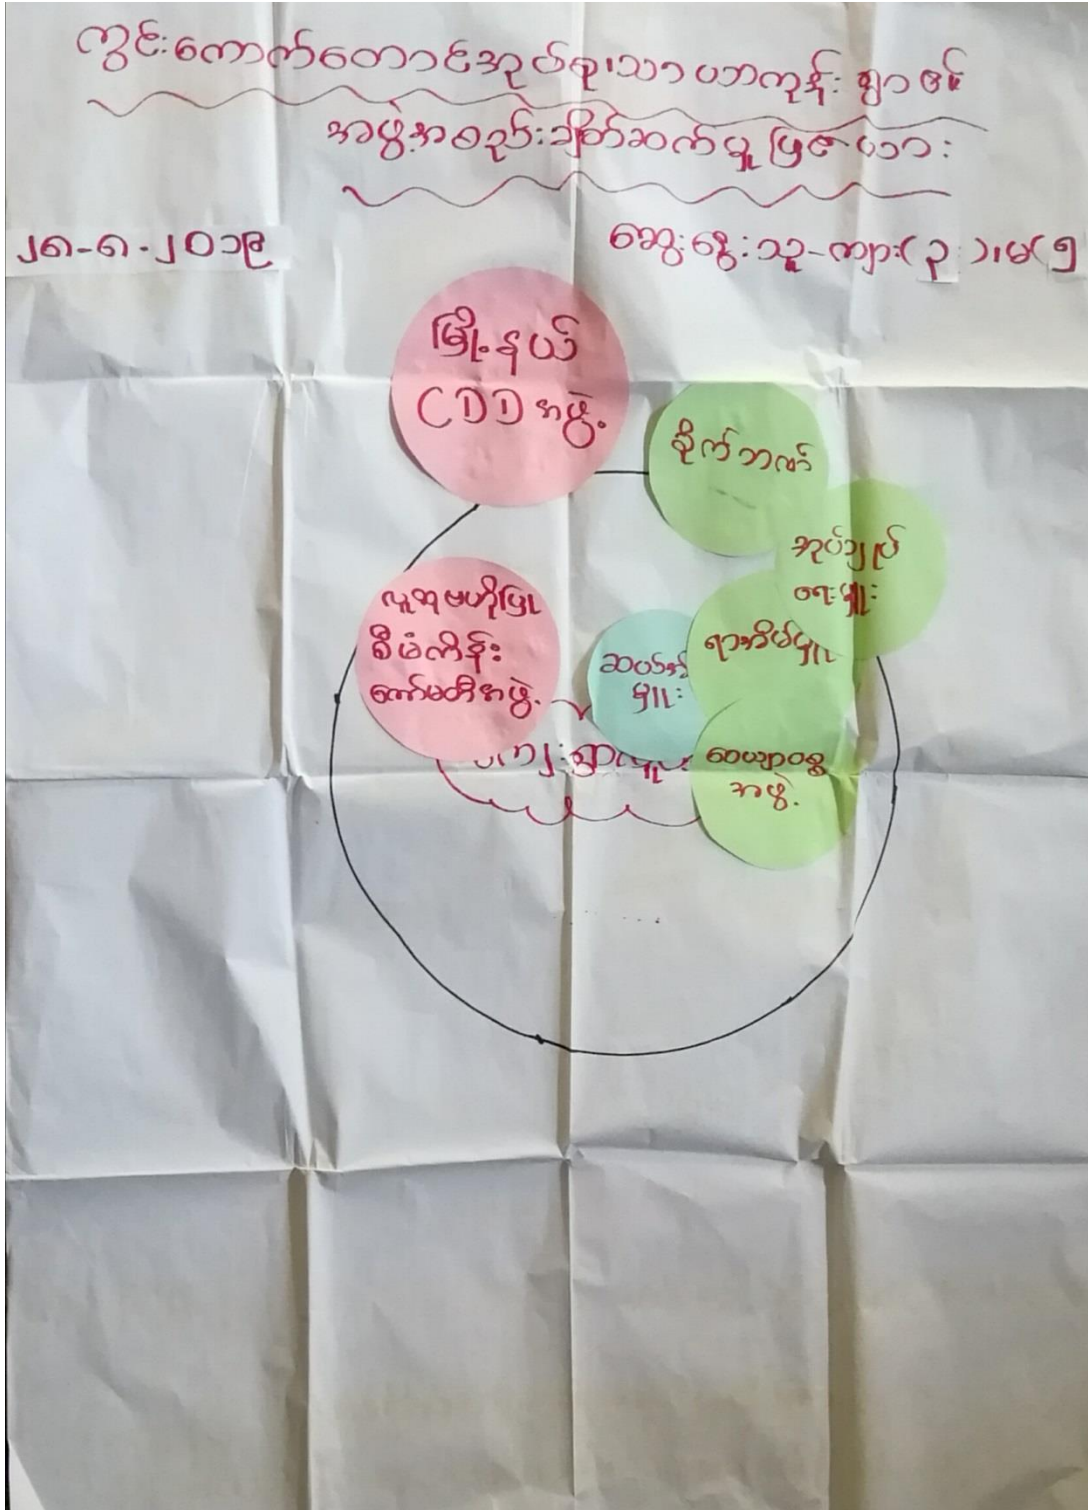 ကွင်းကောက်တောင်အုပ်စု၊သာပဘကုန်း ရွာ၏
အဖွဲ့အစည်းချိတ်ဆက်မှုပြဇယား
၂၆-၆-၂၀၁၉
ဆွေးနွေးသူ-ကျား(၃)၊မ(၅
မြို့နယ်
CDD အဖွဲ့
စိုက်ဘဏ်
အုပ်ချုပ်
ရေးမှူး
လူထုဗဟိုပြု
စီမံကိန်း
ကော်မတီအဖွဲ့
ဆယ်အိမ်
မှူး
ရာအိမ်မှူး
ဝေယျာဝစ္စ
အဖွဲ့